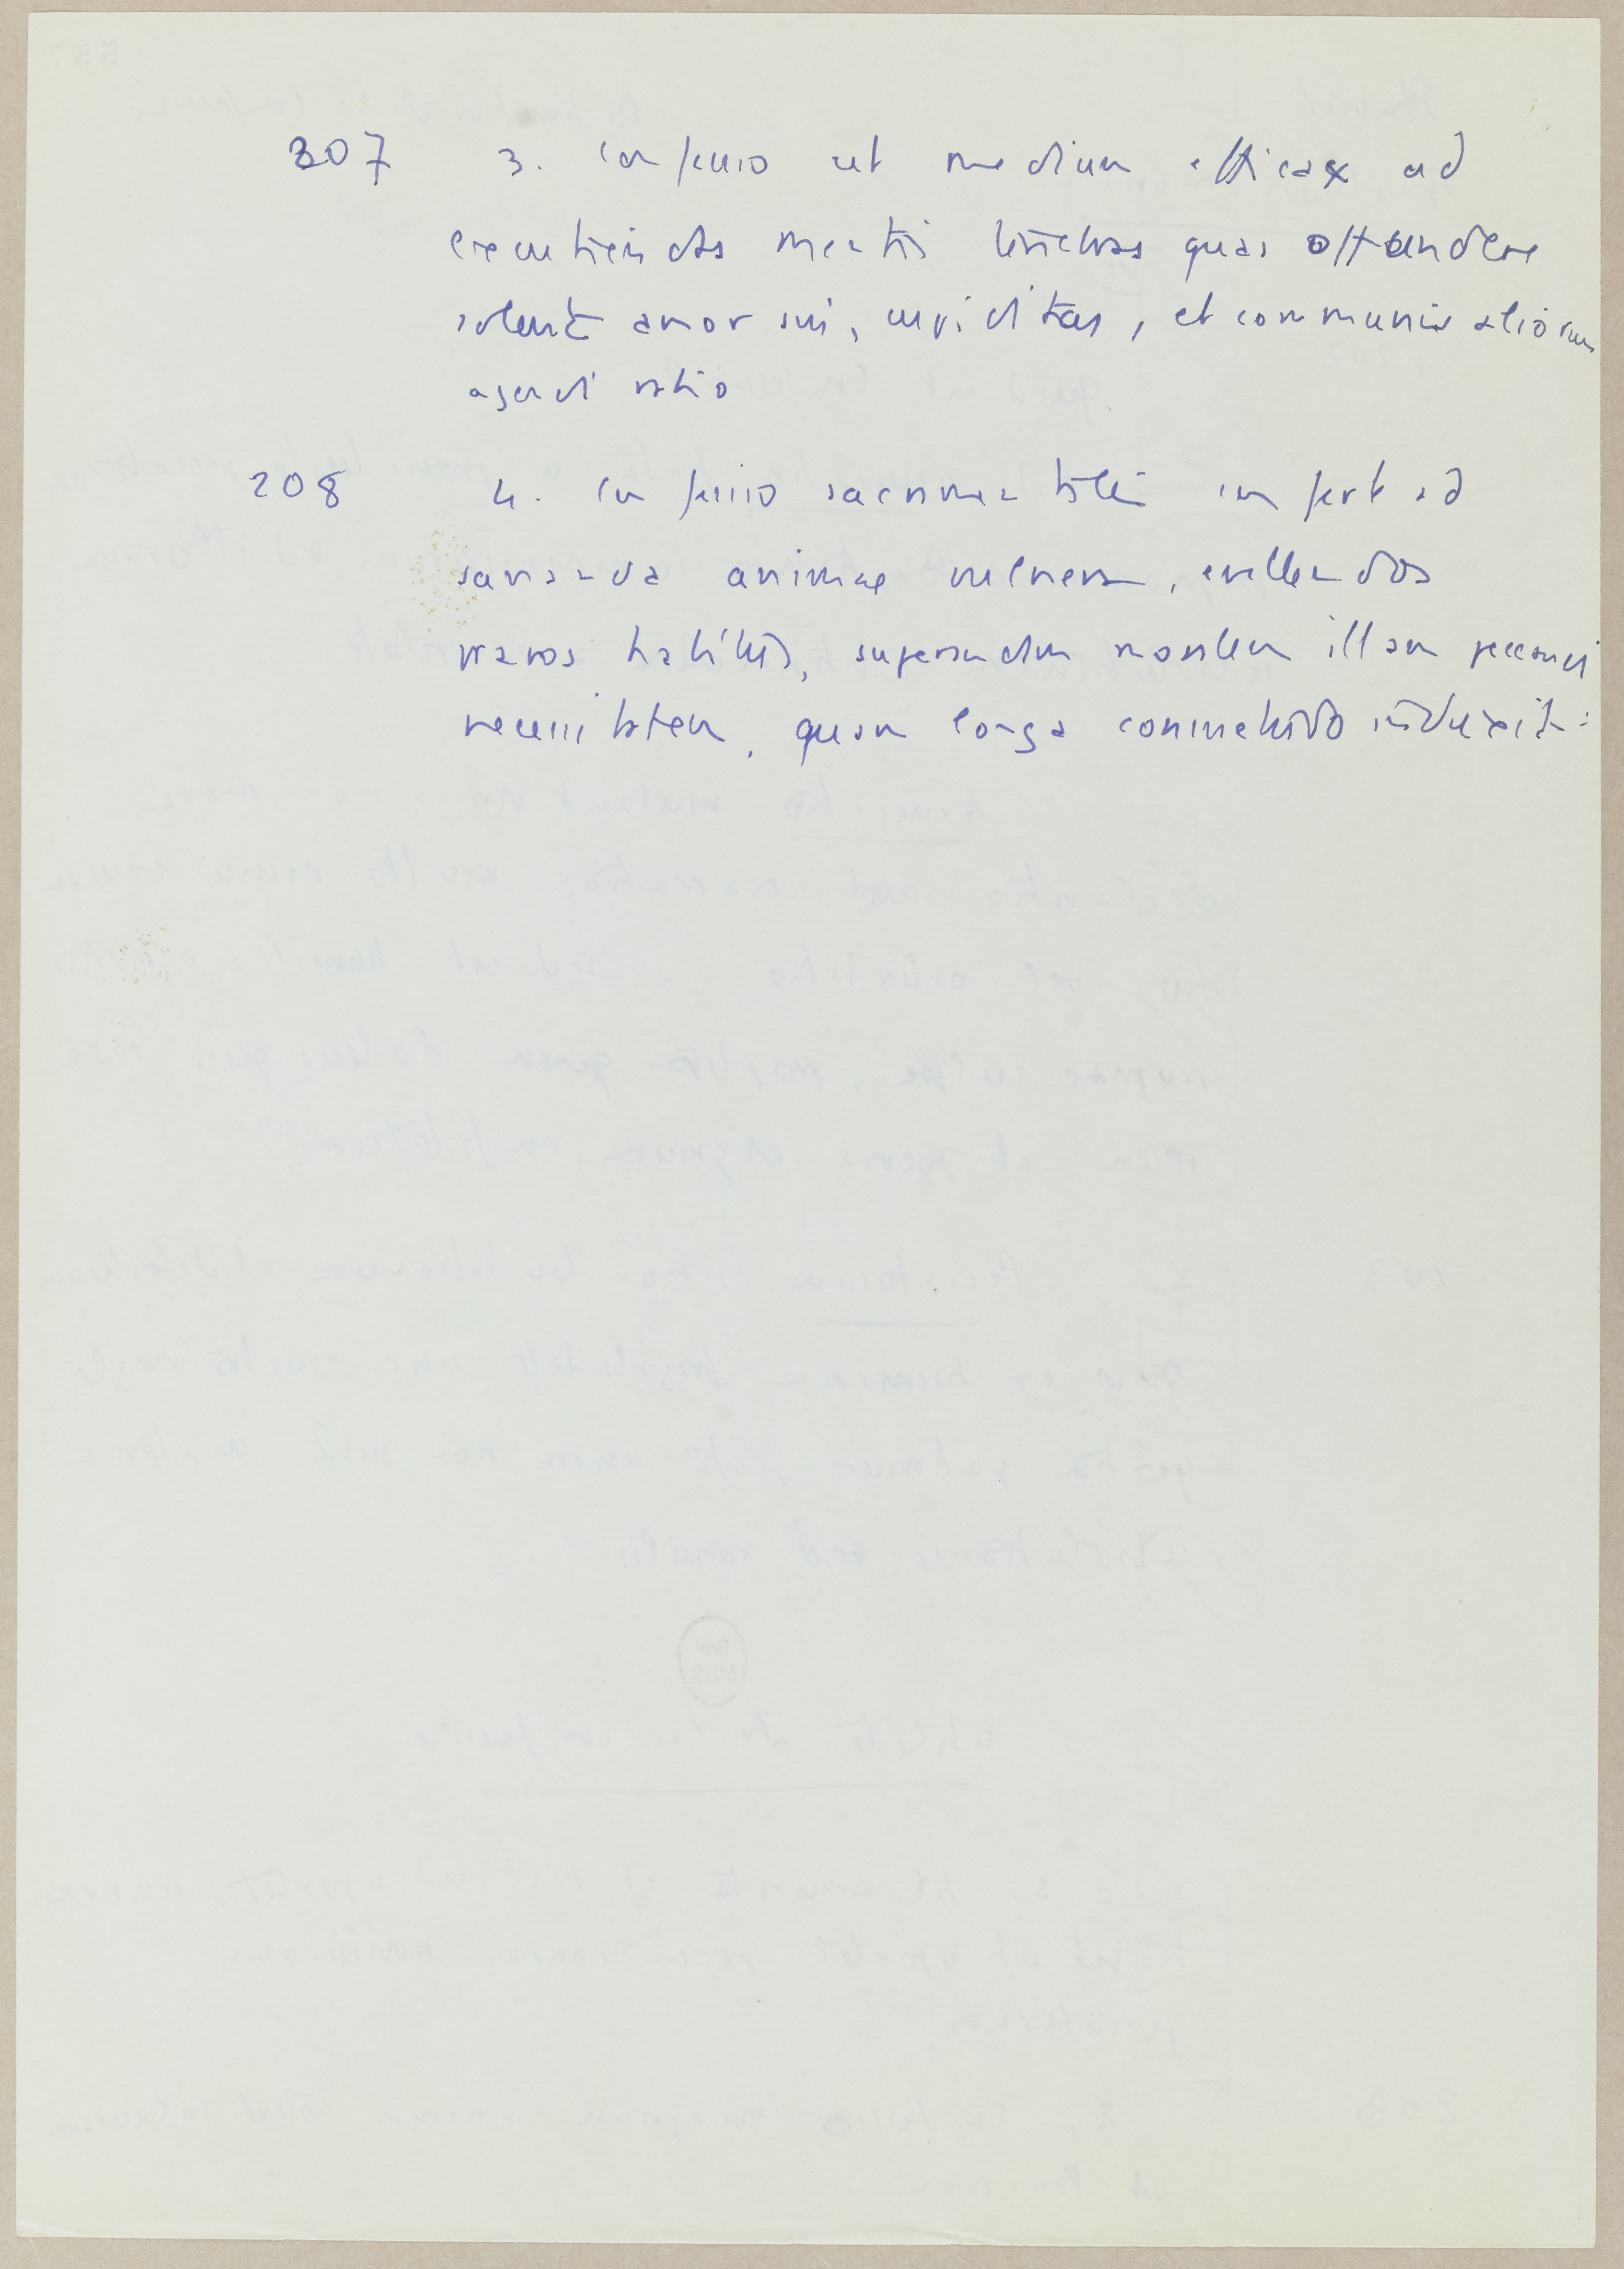 307 3. confessio est medium efficax ad
excutiendas mentis tenebras quas offundere
solent amor sui, cupiditas, et communis aliorum
agendi ratio
208 4. confessio sacramentalis confert ad
sananda animae vulnera, evellendos
pravos habitus, superandam moralem illam peccandi
necessitatem, quam longa consuetudo induxit: